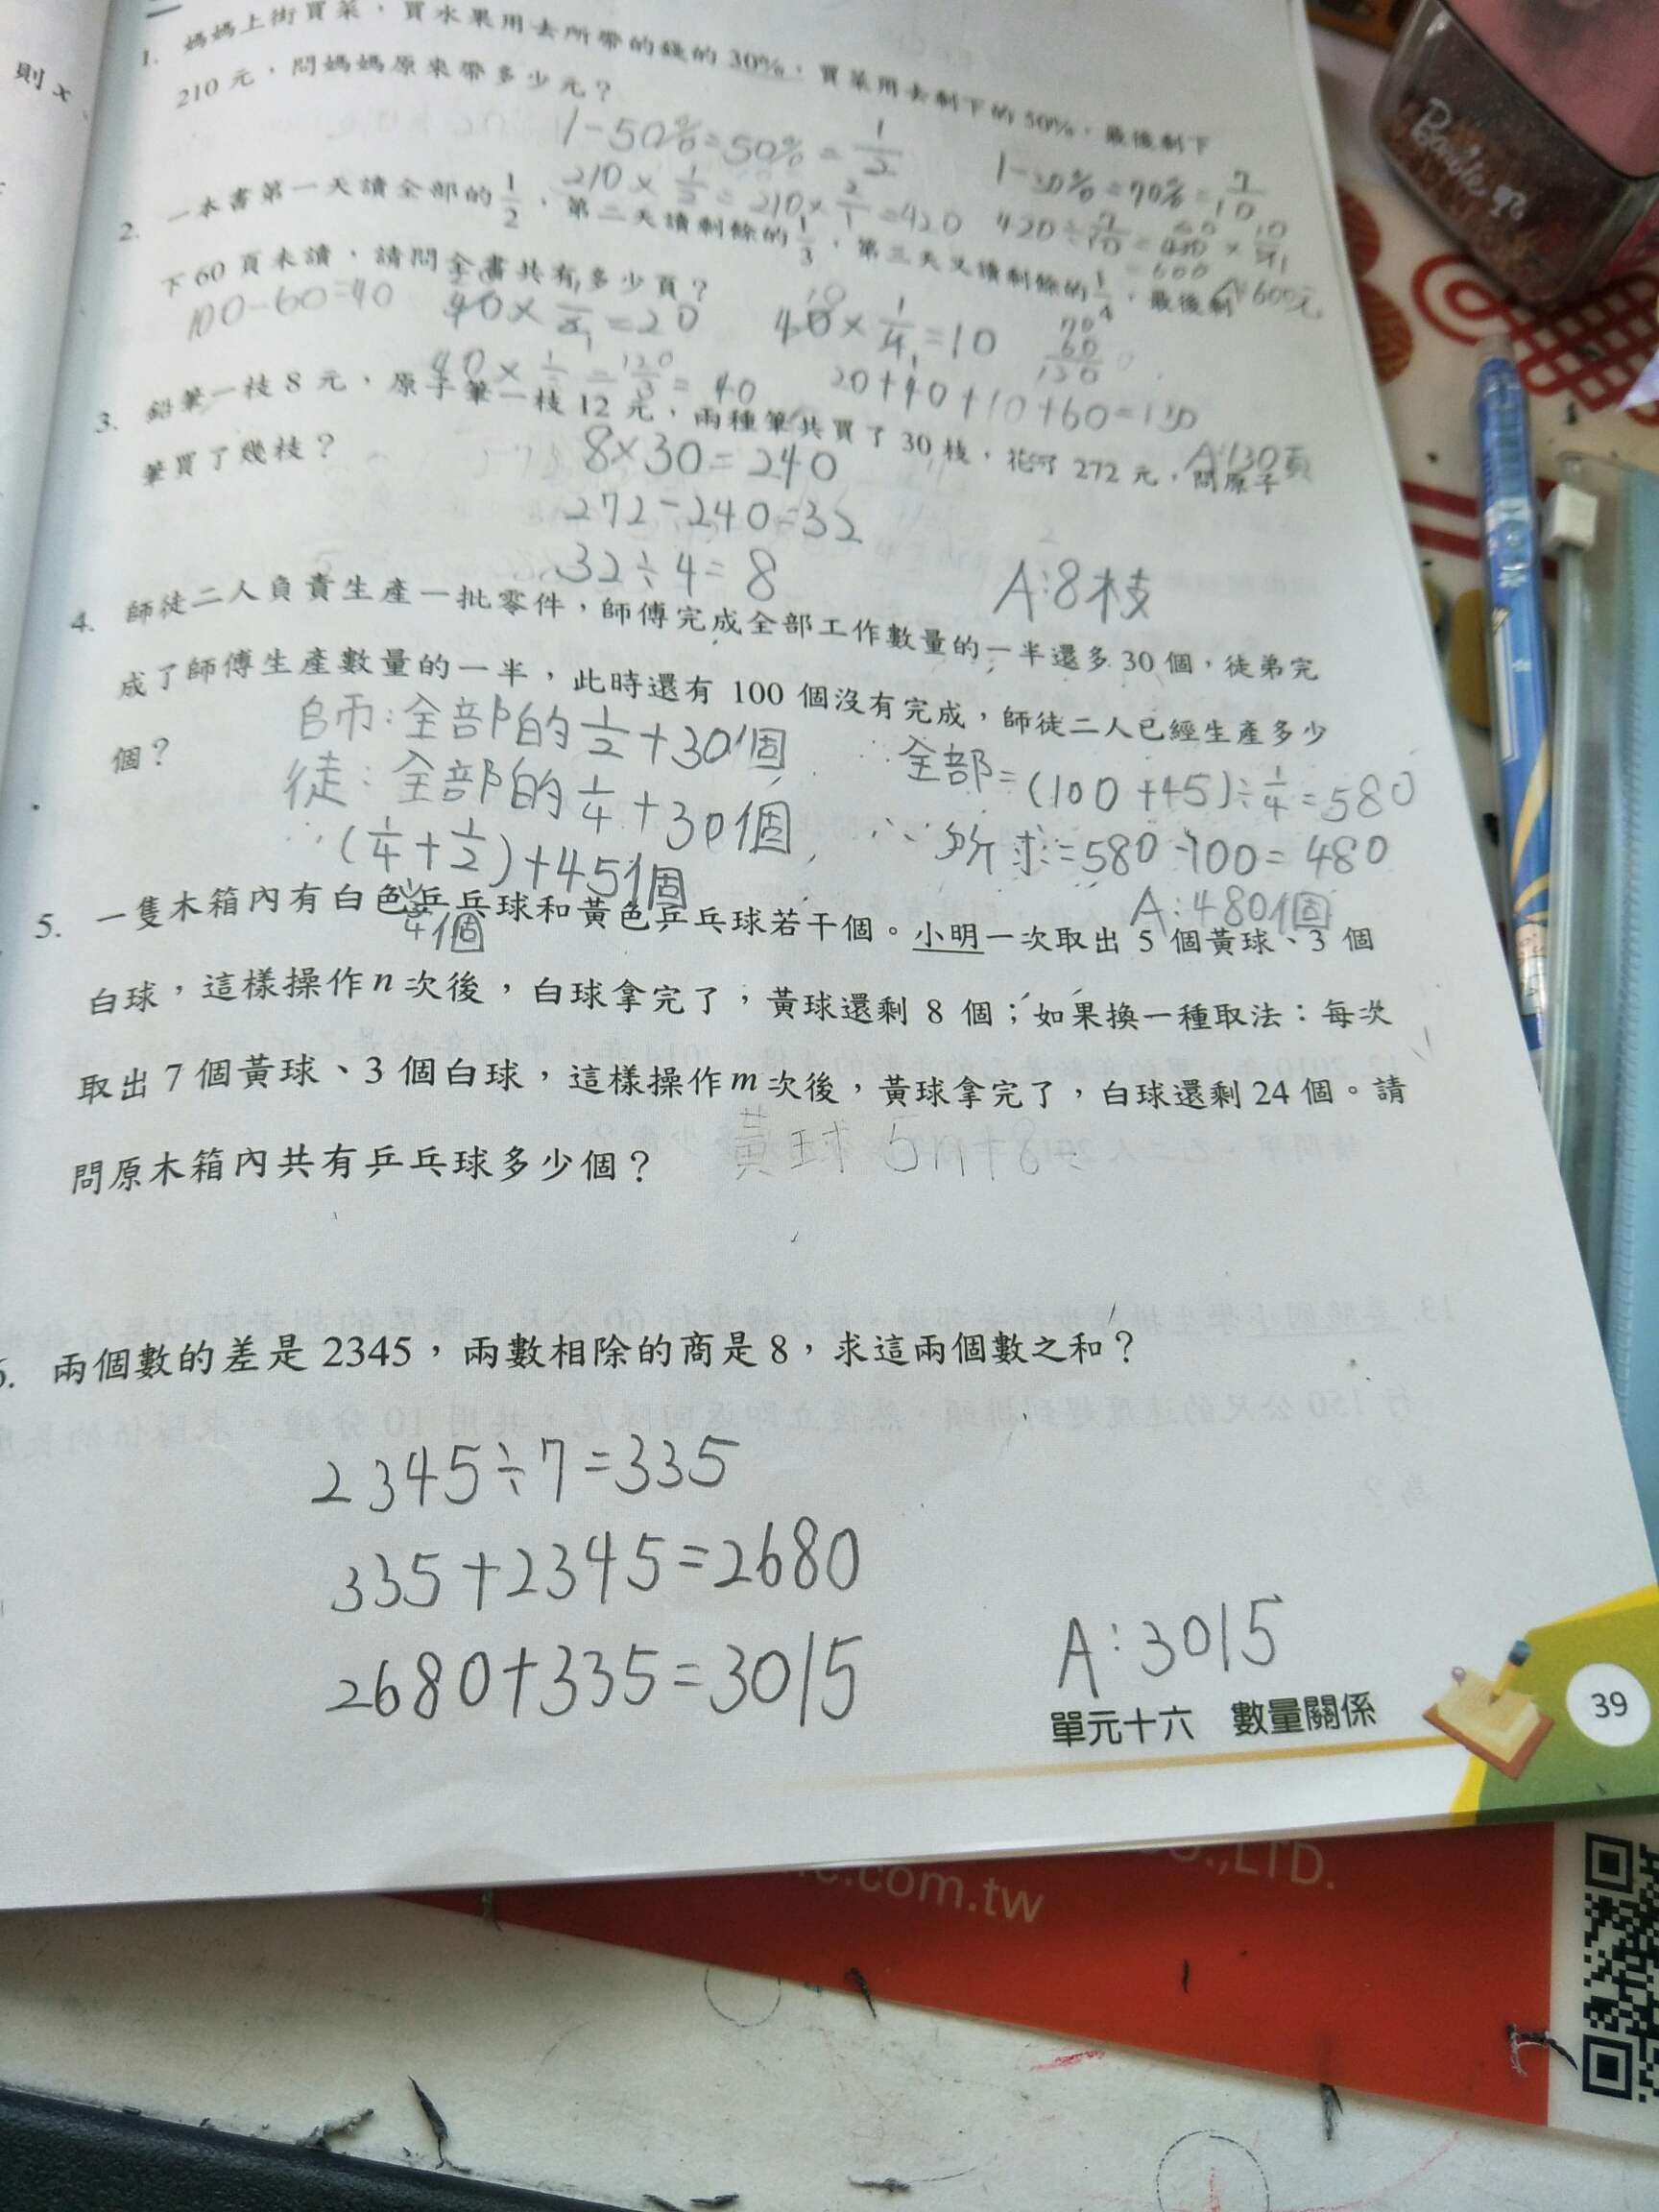 則 x
1. 媽媽上街買菜，買水果用去所帶的錢的 30%，買菜用去剩下的 50%，最後剩下
210 元，問媽媽原來帶多少元？
1-50%=50%=1/2
1-30%=70%=7/10
210×1/2=210×2/1=420
420÷7/10=420×10/7
=600
A:600元
2. 一本書第一天讀全部的1/2，第二天讀剩餘的1/3，第三天又讀剩餘的1/4，最後剩
下 60 頁未讀，請問全書共有多少頁？
100-60=40
40×1/2=20
40×1/4=10
20+40+10+60=130
A:130頁
3. 鉛筆一枝 8 元，原子筆一枝 12 元，兩種筆共買了 30 枝，花了 272 元，問原子
筆買了幾枝？
8×30=240
272-240=32
32÷4=8
A:8枝
4. 師徒二人負責生產一批零件，師傅完成全部工作數量的一半還多 30 個，徒弟完
成了師傅生產數量的一半，此時還有 100 個沒有完成，師徒二人已經生產多少
個？
師:全部的1/2+30個
徒:全部的1/4+30個
∴(1/4+1/2)+45個
1/4個
全部=(100+45)÷1/4=580
∴所求=580-100=480
A:480個
5. 一隻木箱內有白色乒乓球和黃色乒乓球若干個。小明一次取出 5 個黃球、3 個
白球，這樣操作 n 次後，白球拿完了，黃球還剩 8 個；如果換一種取法：每次
取出 7 個黃球、3 個白球，這樣操作 m 次後，黃球拿完了，白球還剩 24 個。請
問原木箱內共有乒乓球多少個？
黃球 5n+8=
6. 兩個數的差是 2345，兩數相除的商是 8，求這兩個數之和？
2345÷7=335
335+2345=2680
2680+335=3015
A:3015
單元十六 數量關係
39
.,LTD.
.com.tw